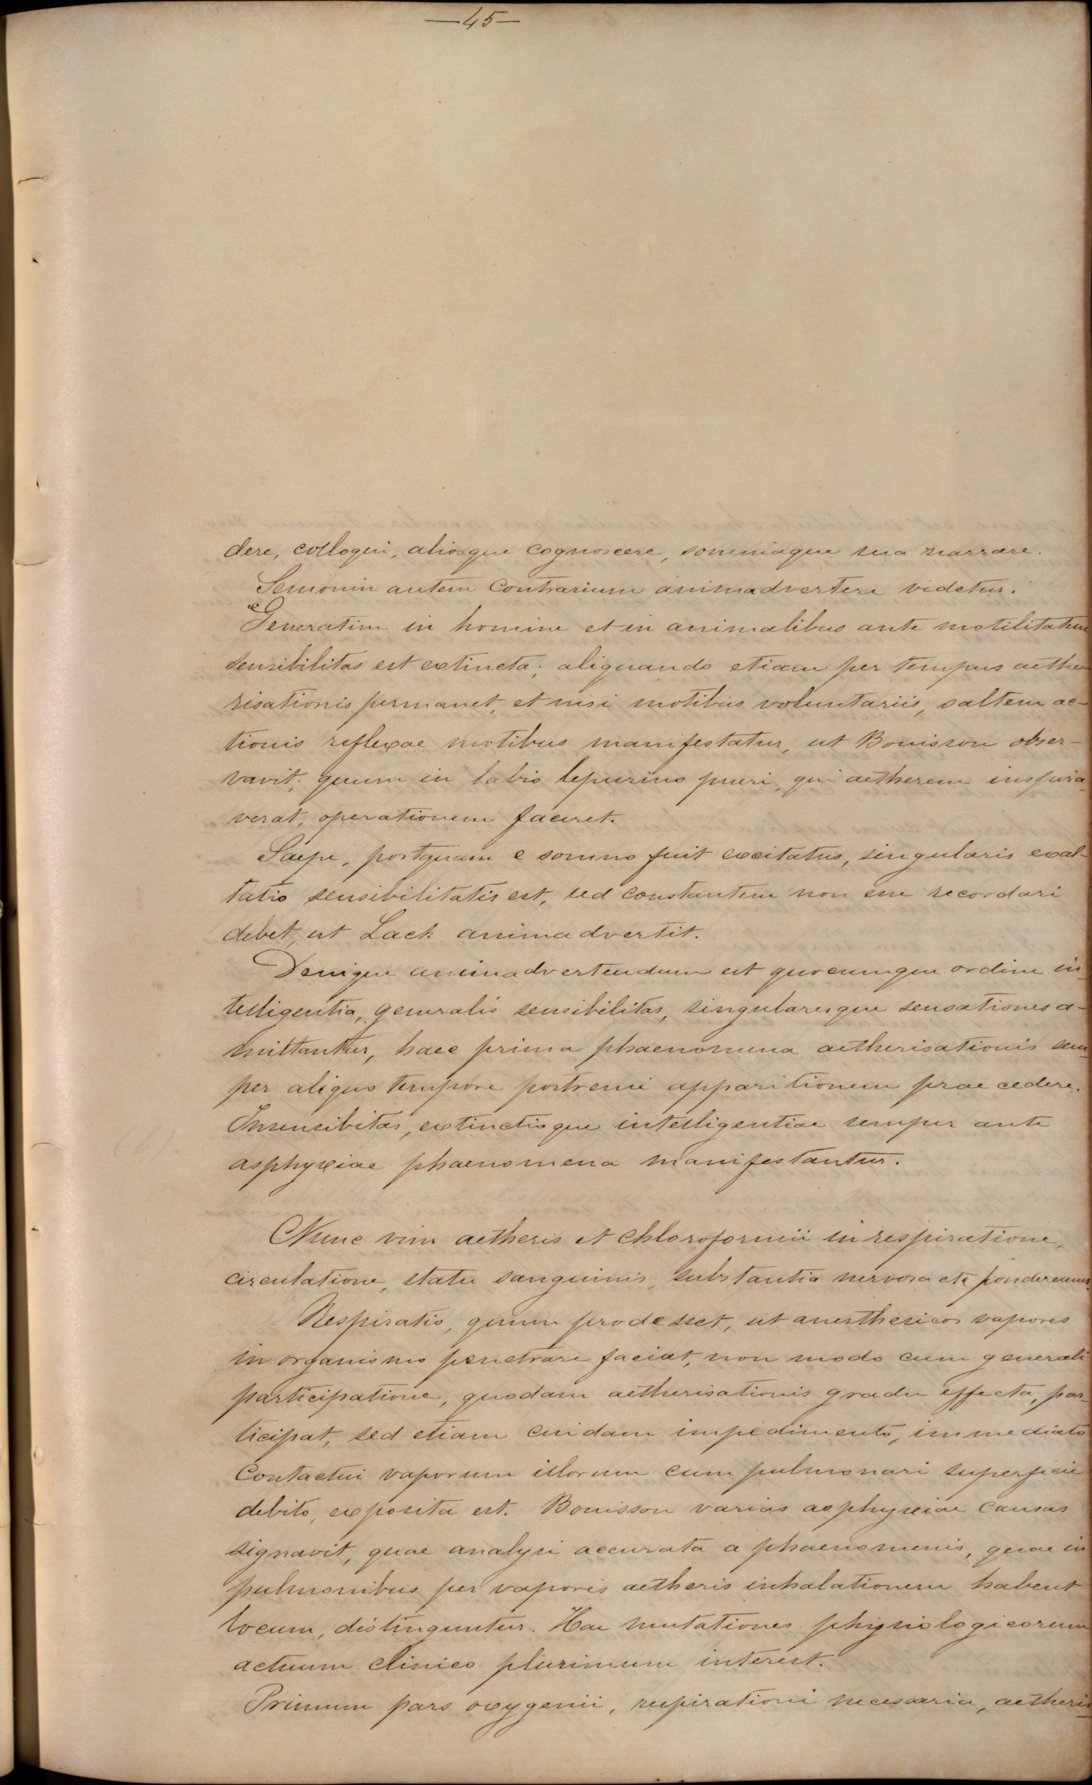 —45—
dere, colloqui, aliosque cognoscere, somniaque sua narrare.
Semonin autem contrarium animadvertere videtur.
Generatim in homine et in animalibus ante motilitatem
sensibilitas est extincta; aliquando etiam per tempus aethe-
risationis permanet, et nisi motibus voluntariis, saltem ac-
tionis reflexae motibus manifestatur, ut Bouisson obser-
vavit, quum in labio lepurino pueri, qui aetherem inspira-
verat, operationem faceret.
Saepe, postquam e somno fuit excitatus, singularis exal-
tatio sensibilitatis est, sed constantem non esse recordari
debet, ut Lach animadvertit.
Denique animadvertendum est quocumque ordine in-
telligentia, generalis sensibilitas, singularesque sensationes a-
mittantur, haec prima phaenomena aetherisationis sem-
per aliquo tempore postremi apparitionem praecedere.
Insensibitas, extinctioque intelligentiae semper ante
asphyxiae phaenomena manifestantur.
Nunc vim aetheris et chloroformii in respiratione,
circulatione, statu sanguinis, substantia nervosa etc ponderemus
Respiratio, quum prodesset, ut anesthesicos vapores
in organismo penetrare faciat, non modo cum generali
participatione, quodam aetherisationis gradu effecta, par-
ticipat, sed etiam cuidam impedimento, immediato
contactui vaporum illorum cum pulmonari superficie
debito, exposita est. Bouisson varias asphyxiae causas
signavit, quae analysi accurata a phaenomenis, quae in
pulmonibus per vaporis aetheris inhalationem habent
locum, distinguntur. Hae mutationes physiologicorum
actuum clinico plurimum interest.
Primum pars oxygenii, respirationi necessaria, aetheris